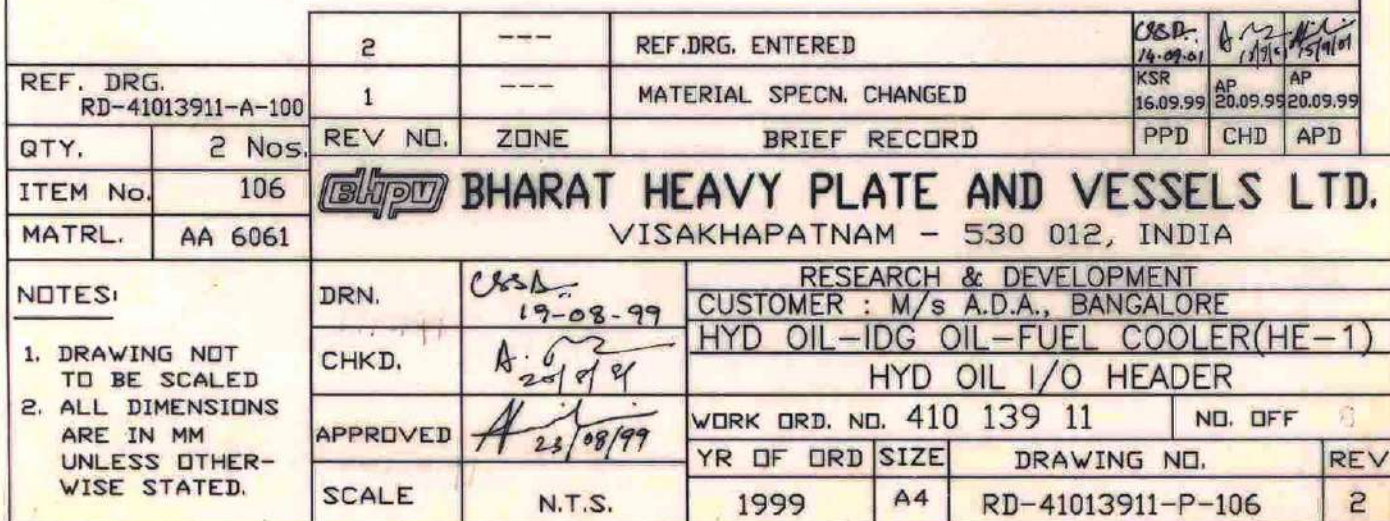 2 --- REF.DRG. ENTERED 14.09.01 15/9/01
REF. DRG.
RD-41013911-A-100
1 --- MATERIAL SPECN. CHANGED KSR 16.09.99 AP 20.09.99 AP 20.09.99
REV NO. ZONE BRIEF RECORD PPD CHD APD
QTY. 2 Nos.
ITEM No. 106
MATRL. AA 6061
BHPV BHARAT HEAVY PLATE AND VESSELS LTD.
VISAKHAPATNAM - 530 012, INDIA
NOTES:
1. DRAWING NOT
TO BE SCALED
2. ALL DIMENSIONS
ARE IN MM
UNLESS OTHER-
WISE STATED.
DRN. 19-08-99
CHKD.
APPROVED 23/08/99
SCALE N.T.S.
RESEARCH & DEVELOPMENT
CUSTOMER : M/s A.D.A., BANGALORE
HYD OIL-IDG OIL-FUEL COOLER(HE-1)
HYD OIL I/O HEADER
WORK ORD. NO. 410 139 11 NO. OFF
YR OF ORD SIZE DRAWING NO. REV
1999 A4 RD-41013911-P-106 2